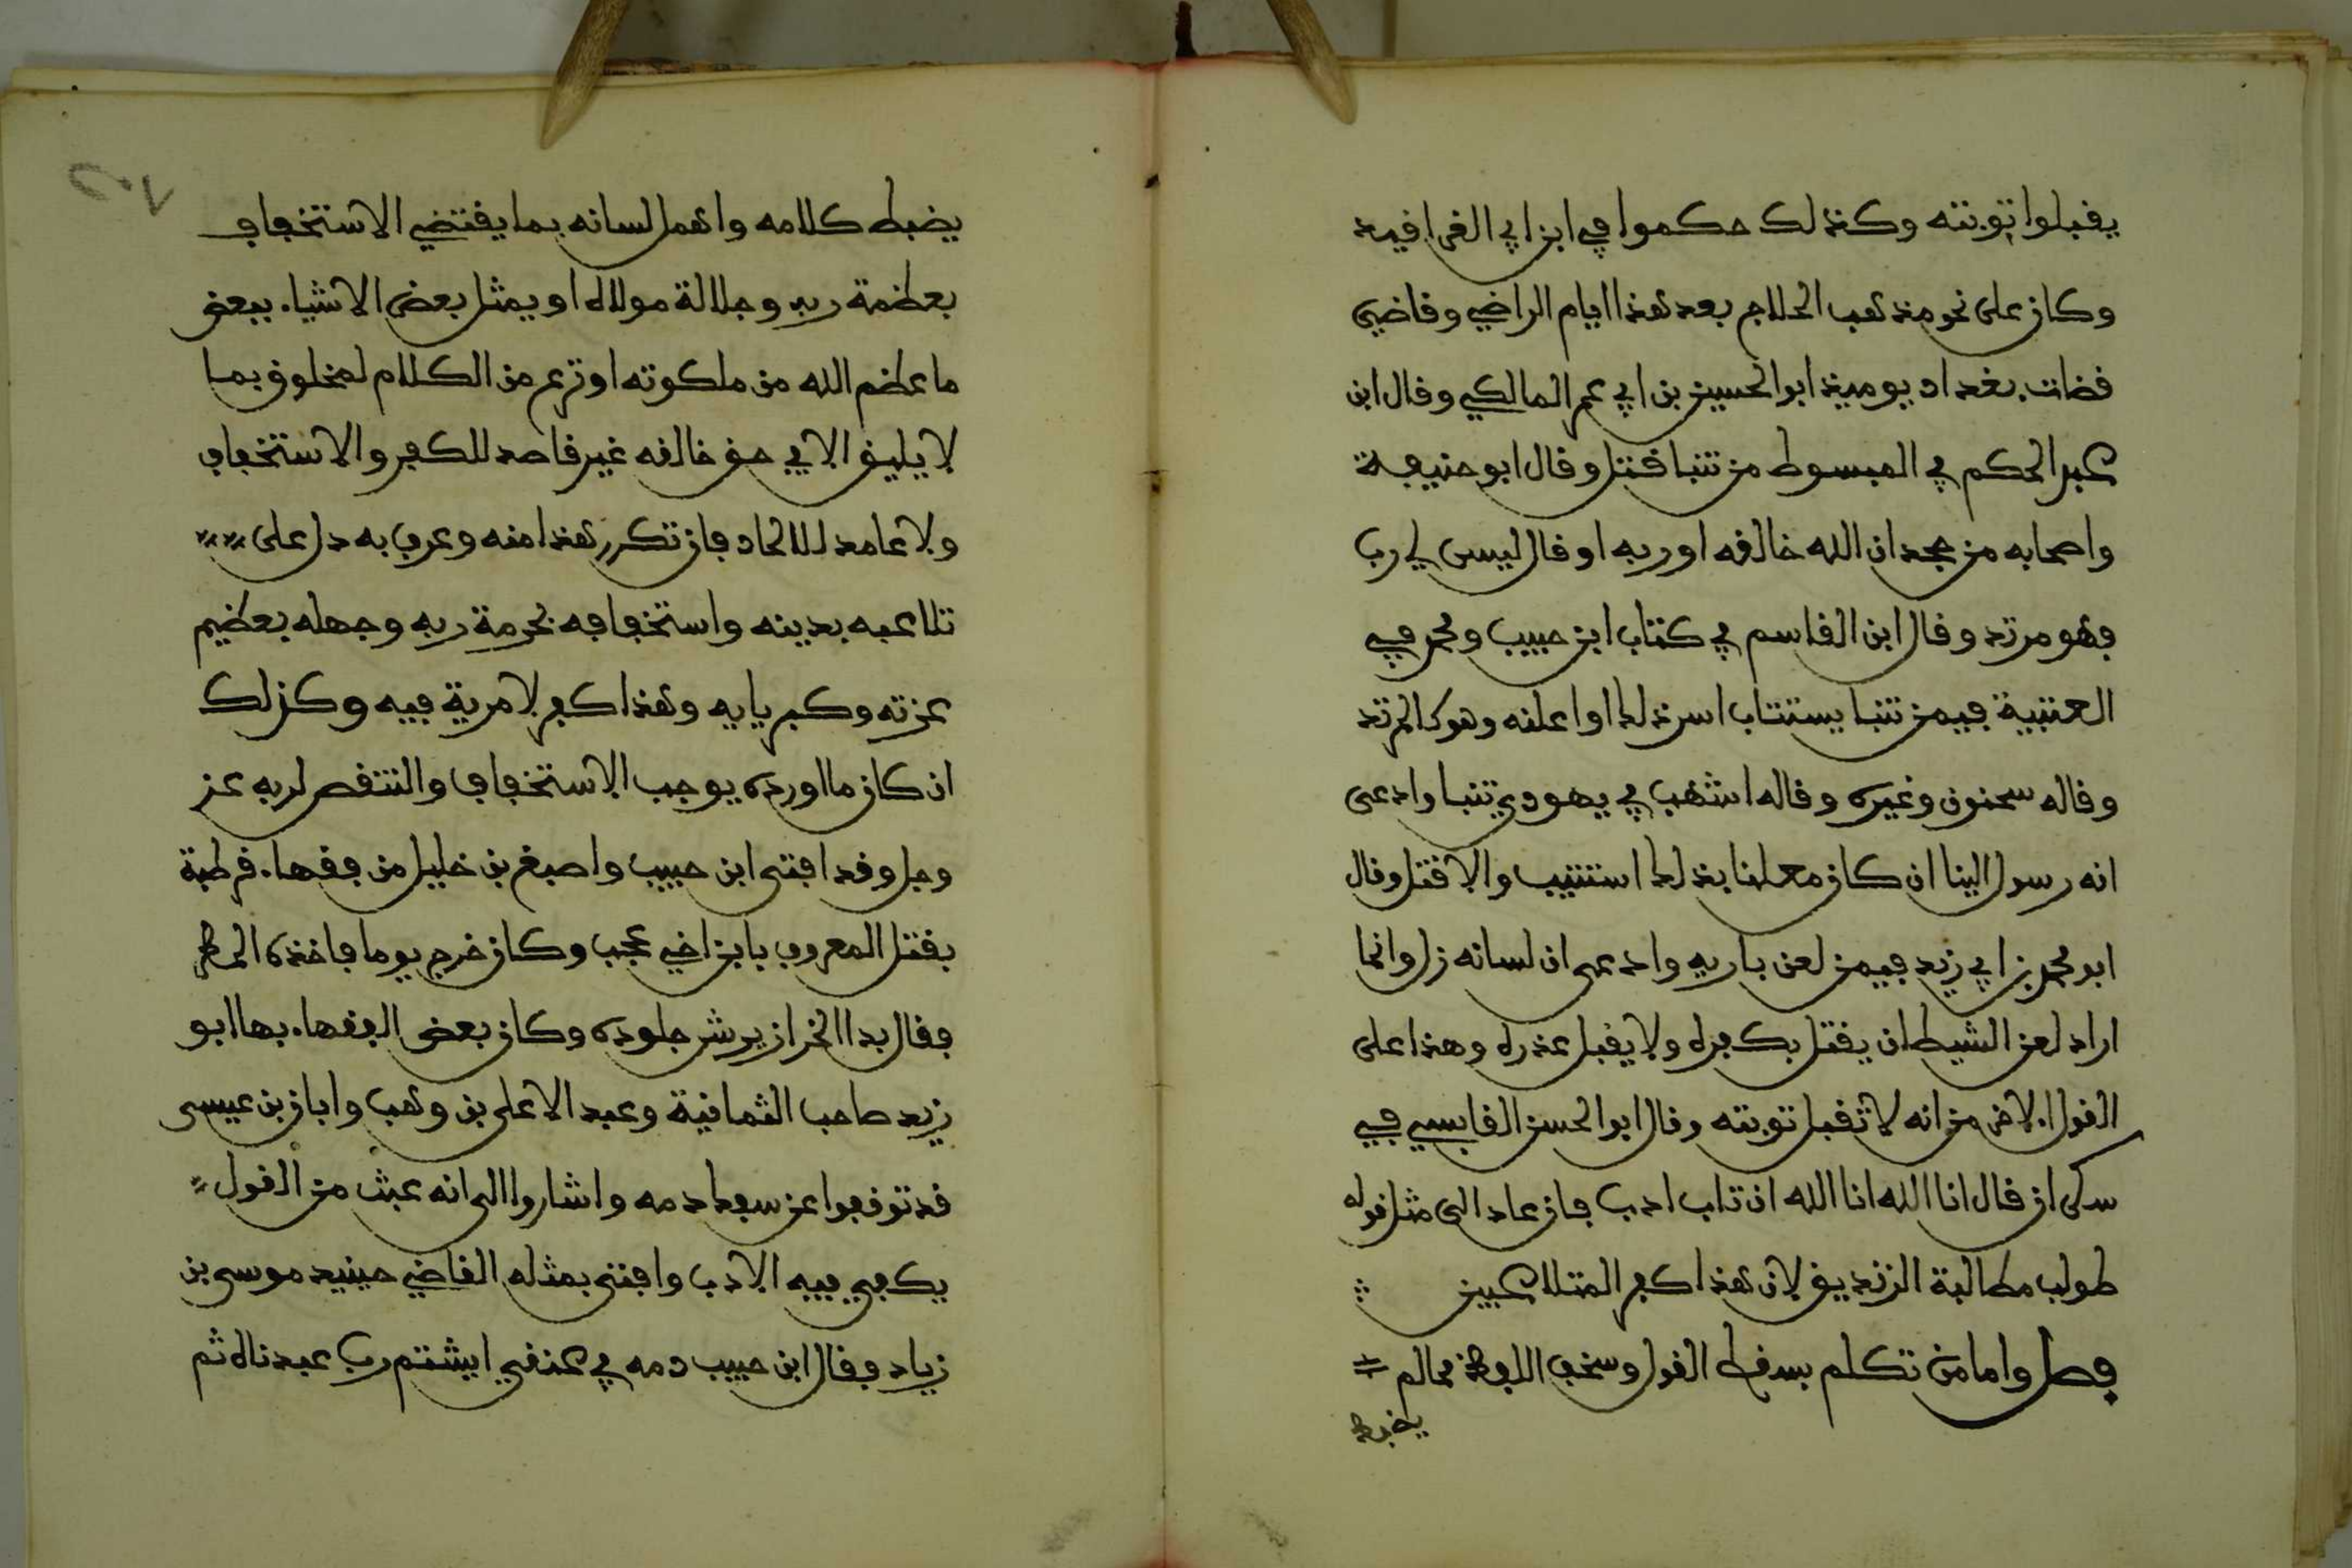 يقبلوا توبته وكذلك حكموا في ابن ابي الغرافيد
وكان على نحو مذهب الحلاج بعد هذا ايام الراضي وقاضي
قضات بغداد يوميذ ابو الحسين بن ابي عمر المالكي وقال ابن
عبد الحكم في المبسوط من تنبا قتل وقال ابو حنيفة
واصحابه من جحد ان الله خالقه او ربه او قال ليس لي رب
فهو مرتد وقال ابن القاسم في كتاب ابن حبيب ومحمد في
العتبية فيمن تنبا يستتاب اسر ذلك او اعلنه وهو كالمرتد
وقاله سحنون وغيره وقاله اشهب في يهودي تنبا وادعى
انه رسول الينا ان كان معلنا بذلك استتيب والا قتل وقال
ابو محمد بن ابي زيد فيمن لعن باريه وادعى ان لسانه زل وانما
اراد لعن الشيطان يقتل بكفره ولا يقبل عذره وهذا على
القول الاخر من انه لا تقبل توبته وقال ابو الحسن القابسي في
سكران قال انا الله انا الله ان تاب ادب فان عاد الى مثل قوله
طولب مطالبة الزنديق لان هذا كفر المتلاعبين
فصل واما من تكلم بسقط القول وسخف اللفظ ممن لم
يضبط
١٠٢
يضبط كلامه واهمل لسانه بما يقتضي الاستخفاف
بعظمة ربه وجلالة مولاه او يمثل بعض الاشياء ببعض
ما عظم الله من ملكوته او نزع من الكلام لمخلوق بما
لا يليق الا في حق خالقه غير قاصد للكفر والاستخفاف
ولا عامد للالحاد فان تكرر هذا منه وعرف به دل على
تلاعبه بدينه واستخفافه بحرمة ربه وجهله بعظيم
عزته وكبريايه وهذا كفر لا مرية فيه وكذلك
ان كان ما اورده يوجب الاستخفاف والتنقص لربه عز
وجل وقد افتى ابن حبيب واصبغ بن خليل من فقهاء قرطبة
بقتل المعروف بابن اخي عجب وكان خرج يوما فاخذه المطر
فقال بدا الخراز يرش جلوده وكان بعض الفقهاء بها ابو
زيد صاحب الثمانية وعبد الاعلى بن وهب وابان بن عيسى
قد توقفوا عن سفك دمه واشاروا الى انه عبث من القول
يكفي فيه الادب وافتى بمثله القاضي حينيد موسى بن
زياد فقال ابن حبيب دمه في عنقي ايشتم رب عبدناه ثم